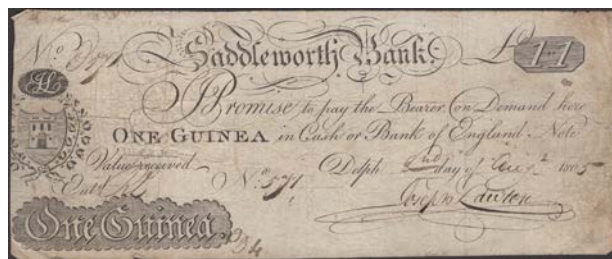 No 571 Saddleworth Bank. £ 1 " 1
I Promise to pay the Bearer on Demand here
ONE GUINEA in Cash or Bank of England Note
Value received Delph 2nd day of Augt 1805
Entd No 571 Joseph Lawton
One Guinea.